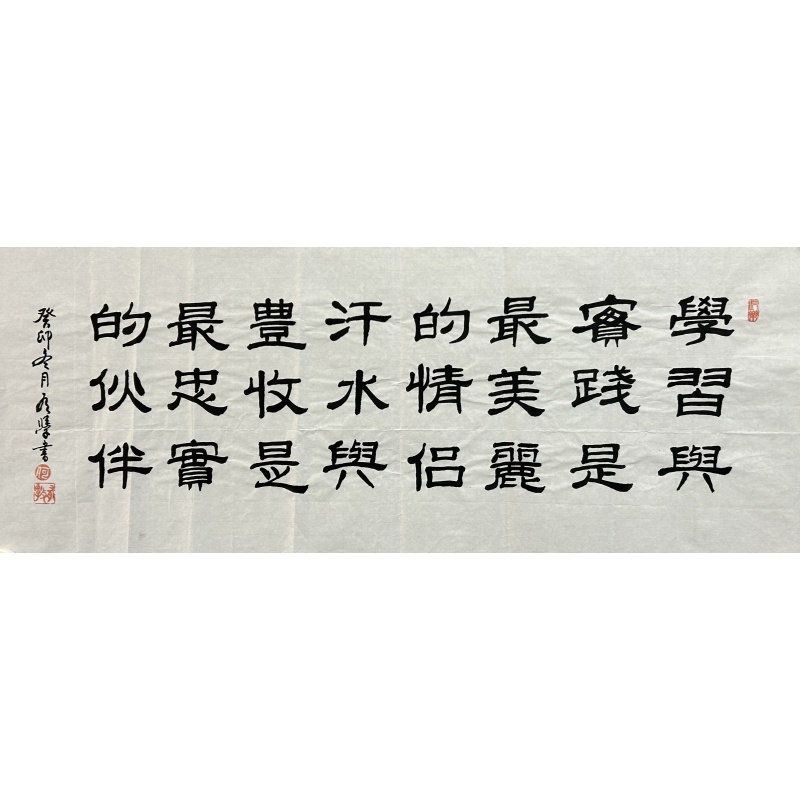 學習與
實踐是
最美麗
的情侶
汗水與
豐收是
最忠實
的伙伴
癸卯冬月 書